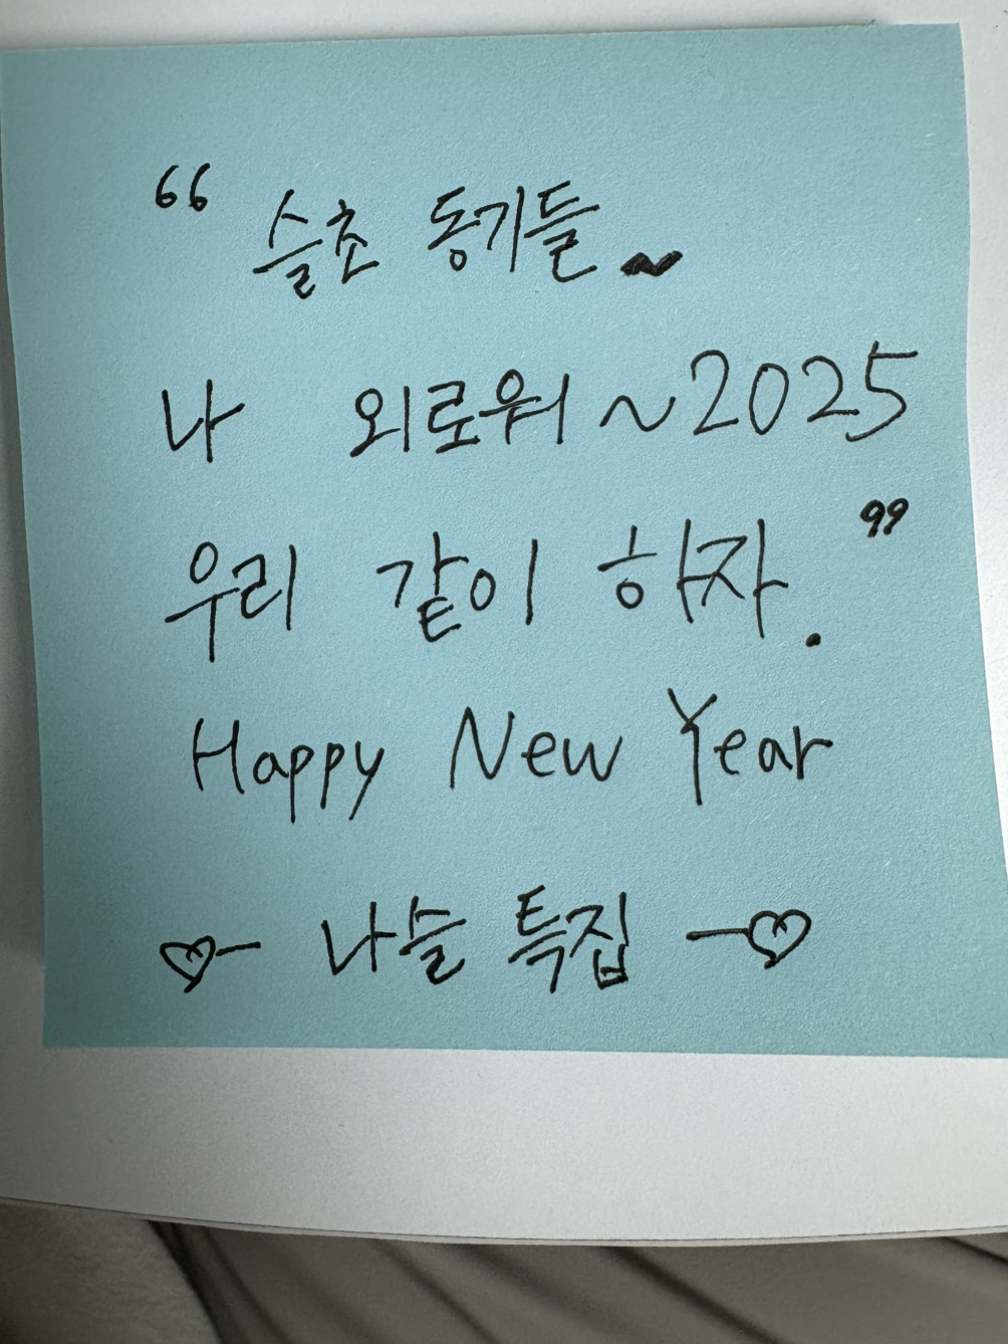 “ 슬초 동기들~
나 외로워~2025
우리 같이 하자. ”
Happy New Year
♡- 나슬 특집 -♡